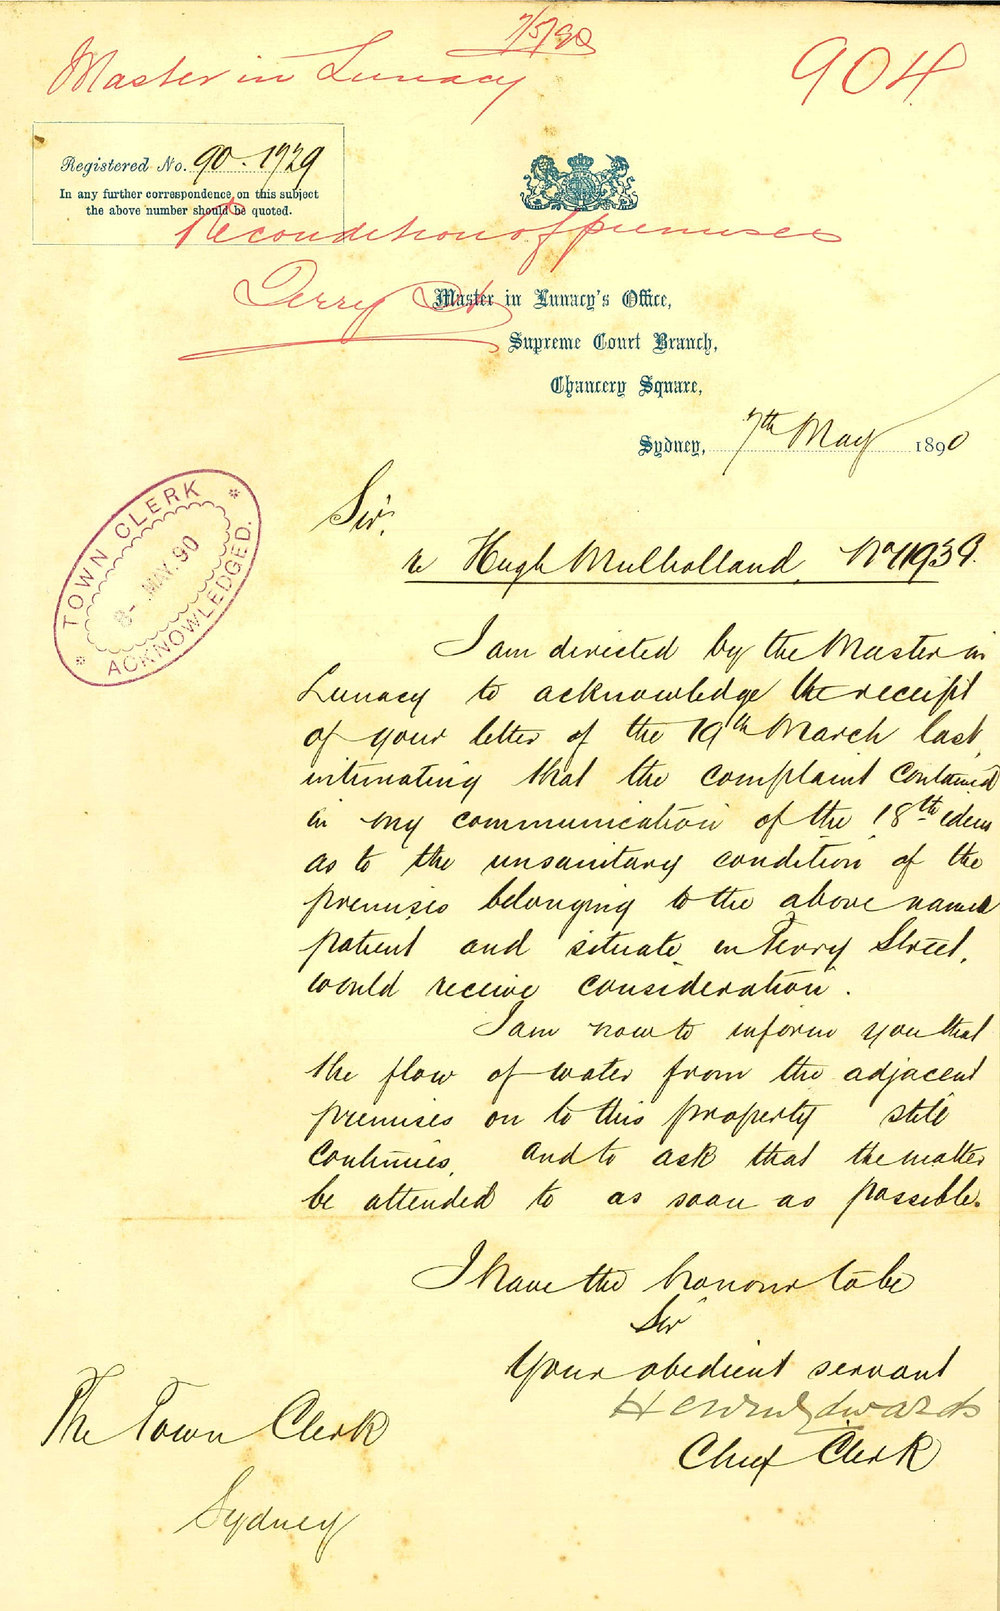 7/5/90
Master in Lunacy
904
Registered No. 90-1929
In any further correspondence on this subject
the above number should be quoted.
Re condition of premises
Terry St
Master in Lunacy's Office,
Supreme Court Branch,
Chancery Square,
Sydney, 7th May 1890
TOWN CLERK
8- MAY. 90
ACKNOWLEDGED.
Sir,
re Hugh Mulholland, No 11939.
I am directed by the Master in
Lunacy to acknowledge the receipt
of your letter of the 19th March last,
intimating that the complaint contained
in my communication of the 18th idem
as to the unsanitary condition of the
premises belonging to the above named
patient and situate in Terry Street,
would receive consideration.
I am now to inform you that
the flow of water from the adjacent
premises on to this property still
continues, and to ask that the matter
be attended to as soon as possible.
I have the honour to be
Sir
Your obedient servant
Edwards
Chief Clerk
The Town Clerk
Sydney